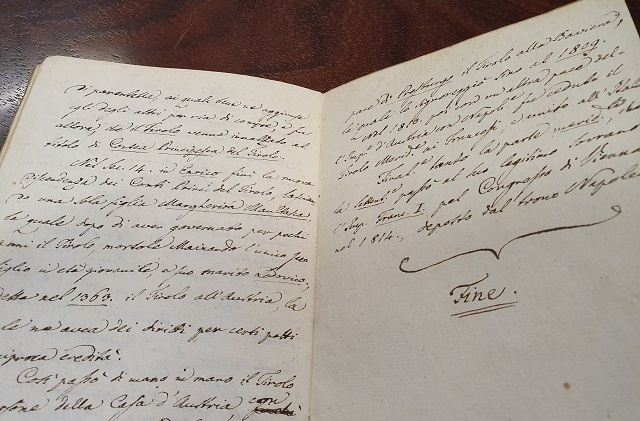 di parentela, ai quali due ne aggiunse
egli degli altri per via di compre, e per
allora, da il Tirolo venne innalzato al
titolo di Contea Principesca del Tirolo.
Nel Sec. 14. in Enrico finì la mas
discendenza dei Conti Princi del Tirolo, lascian
do una sola figlia Margherita Maultasch,
la quale dopo di aver governato per pochi
anni il Tirolo, mortole Mainardo l'unico suo
figlio in età giovanile, e suo marito Lodovico,
nel 1363. il Tirolo all'Austria, la
le ne avea dei diritti per certi patti
eredità.
Così passò di mano in mano il Tirolo
della Casa d'Austria con
pace di Presburgo il Tirolo alla Baviera,
la quale lo signoreggiò fino al 1809.
Nel 1810. poi con un'altra pace del-
l'Imp. d'Austria con Napol. fu ceduto il
Tirolo Merid. ai Francesi, e unito all'Ital
Final. tanto la parte merid. che
la settent. passò al suo legitimo Sovrano
l'Imp. Franc. I. pel Congresso di Vienna
nel 1814., deposto dal trono Napole
Fine.